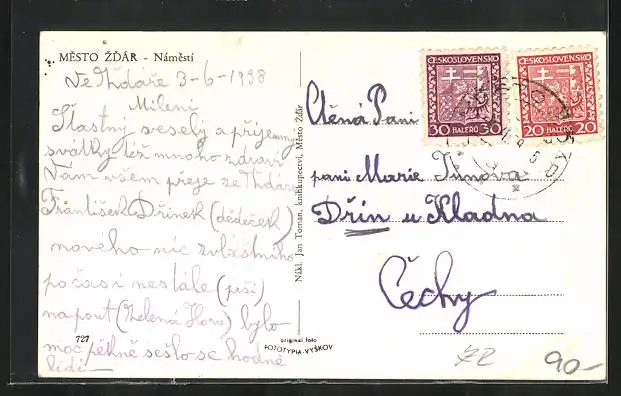 MĚSTO ŽĎÁR - Náměstí
Ve Žďáře 3-6-1938
Milení
Šťastný veselý a příjemný
svátky též mnoho zdraví
Vám všem přeje ze Žďáru
František Dřínek (dědeček)
nového nic zvláštního
počasí nestále (prší)
na pouť (Zelená Hora) bylo
moc pěkně sešlo se hodně
lidí
727
original foto
FOTOTYPIA-VYŠKOV
Nákl. Jan Toman, knihkupectví, Město Žďár
Ctěná Paní
paní Marie
Dřín u Kladna
Čechy
ČESKOSLOVENSKO
30 HALÉŘŮ 30
ČESKOSLOVENSKO
20 HALÉŘŮ 20
72
90-